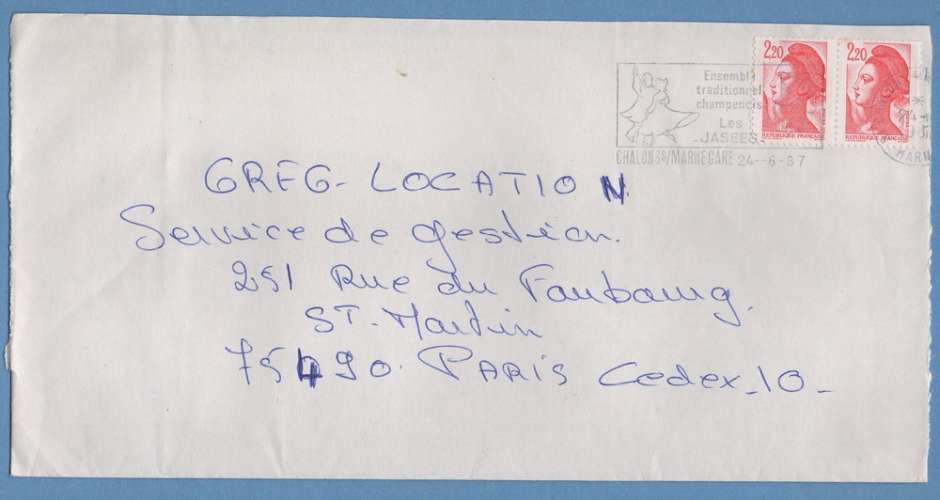 Ensemble
traditionnel
champenois
Les
-JASEES-
CHALON S/MARNE GARE 24--6-87
2,20
2,20
REPUBLIQUE FRANÇAISE
REPUBLIQUE FRANÇAISE
GREG-LOCATION
Service de gestion.
251 Rue du Faubourg.
ST-Martin
75490. PARIS Cedex_10_